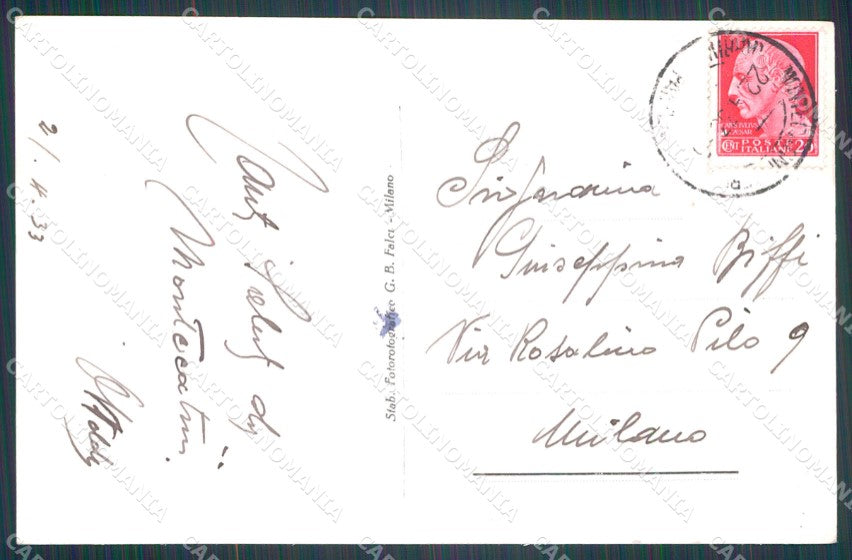 21.4.33
Tanti saluti da
Montecatini
Stab. Fotorotografico G. B. Falci - Milano
POSTE
ITALIANE
CENT 20
22
Signorina
Giuseppina Biffi
Via Rosalino Pilo 9
Milano
CARTOLINOMANIA